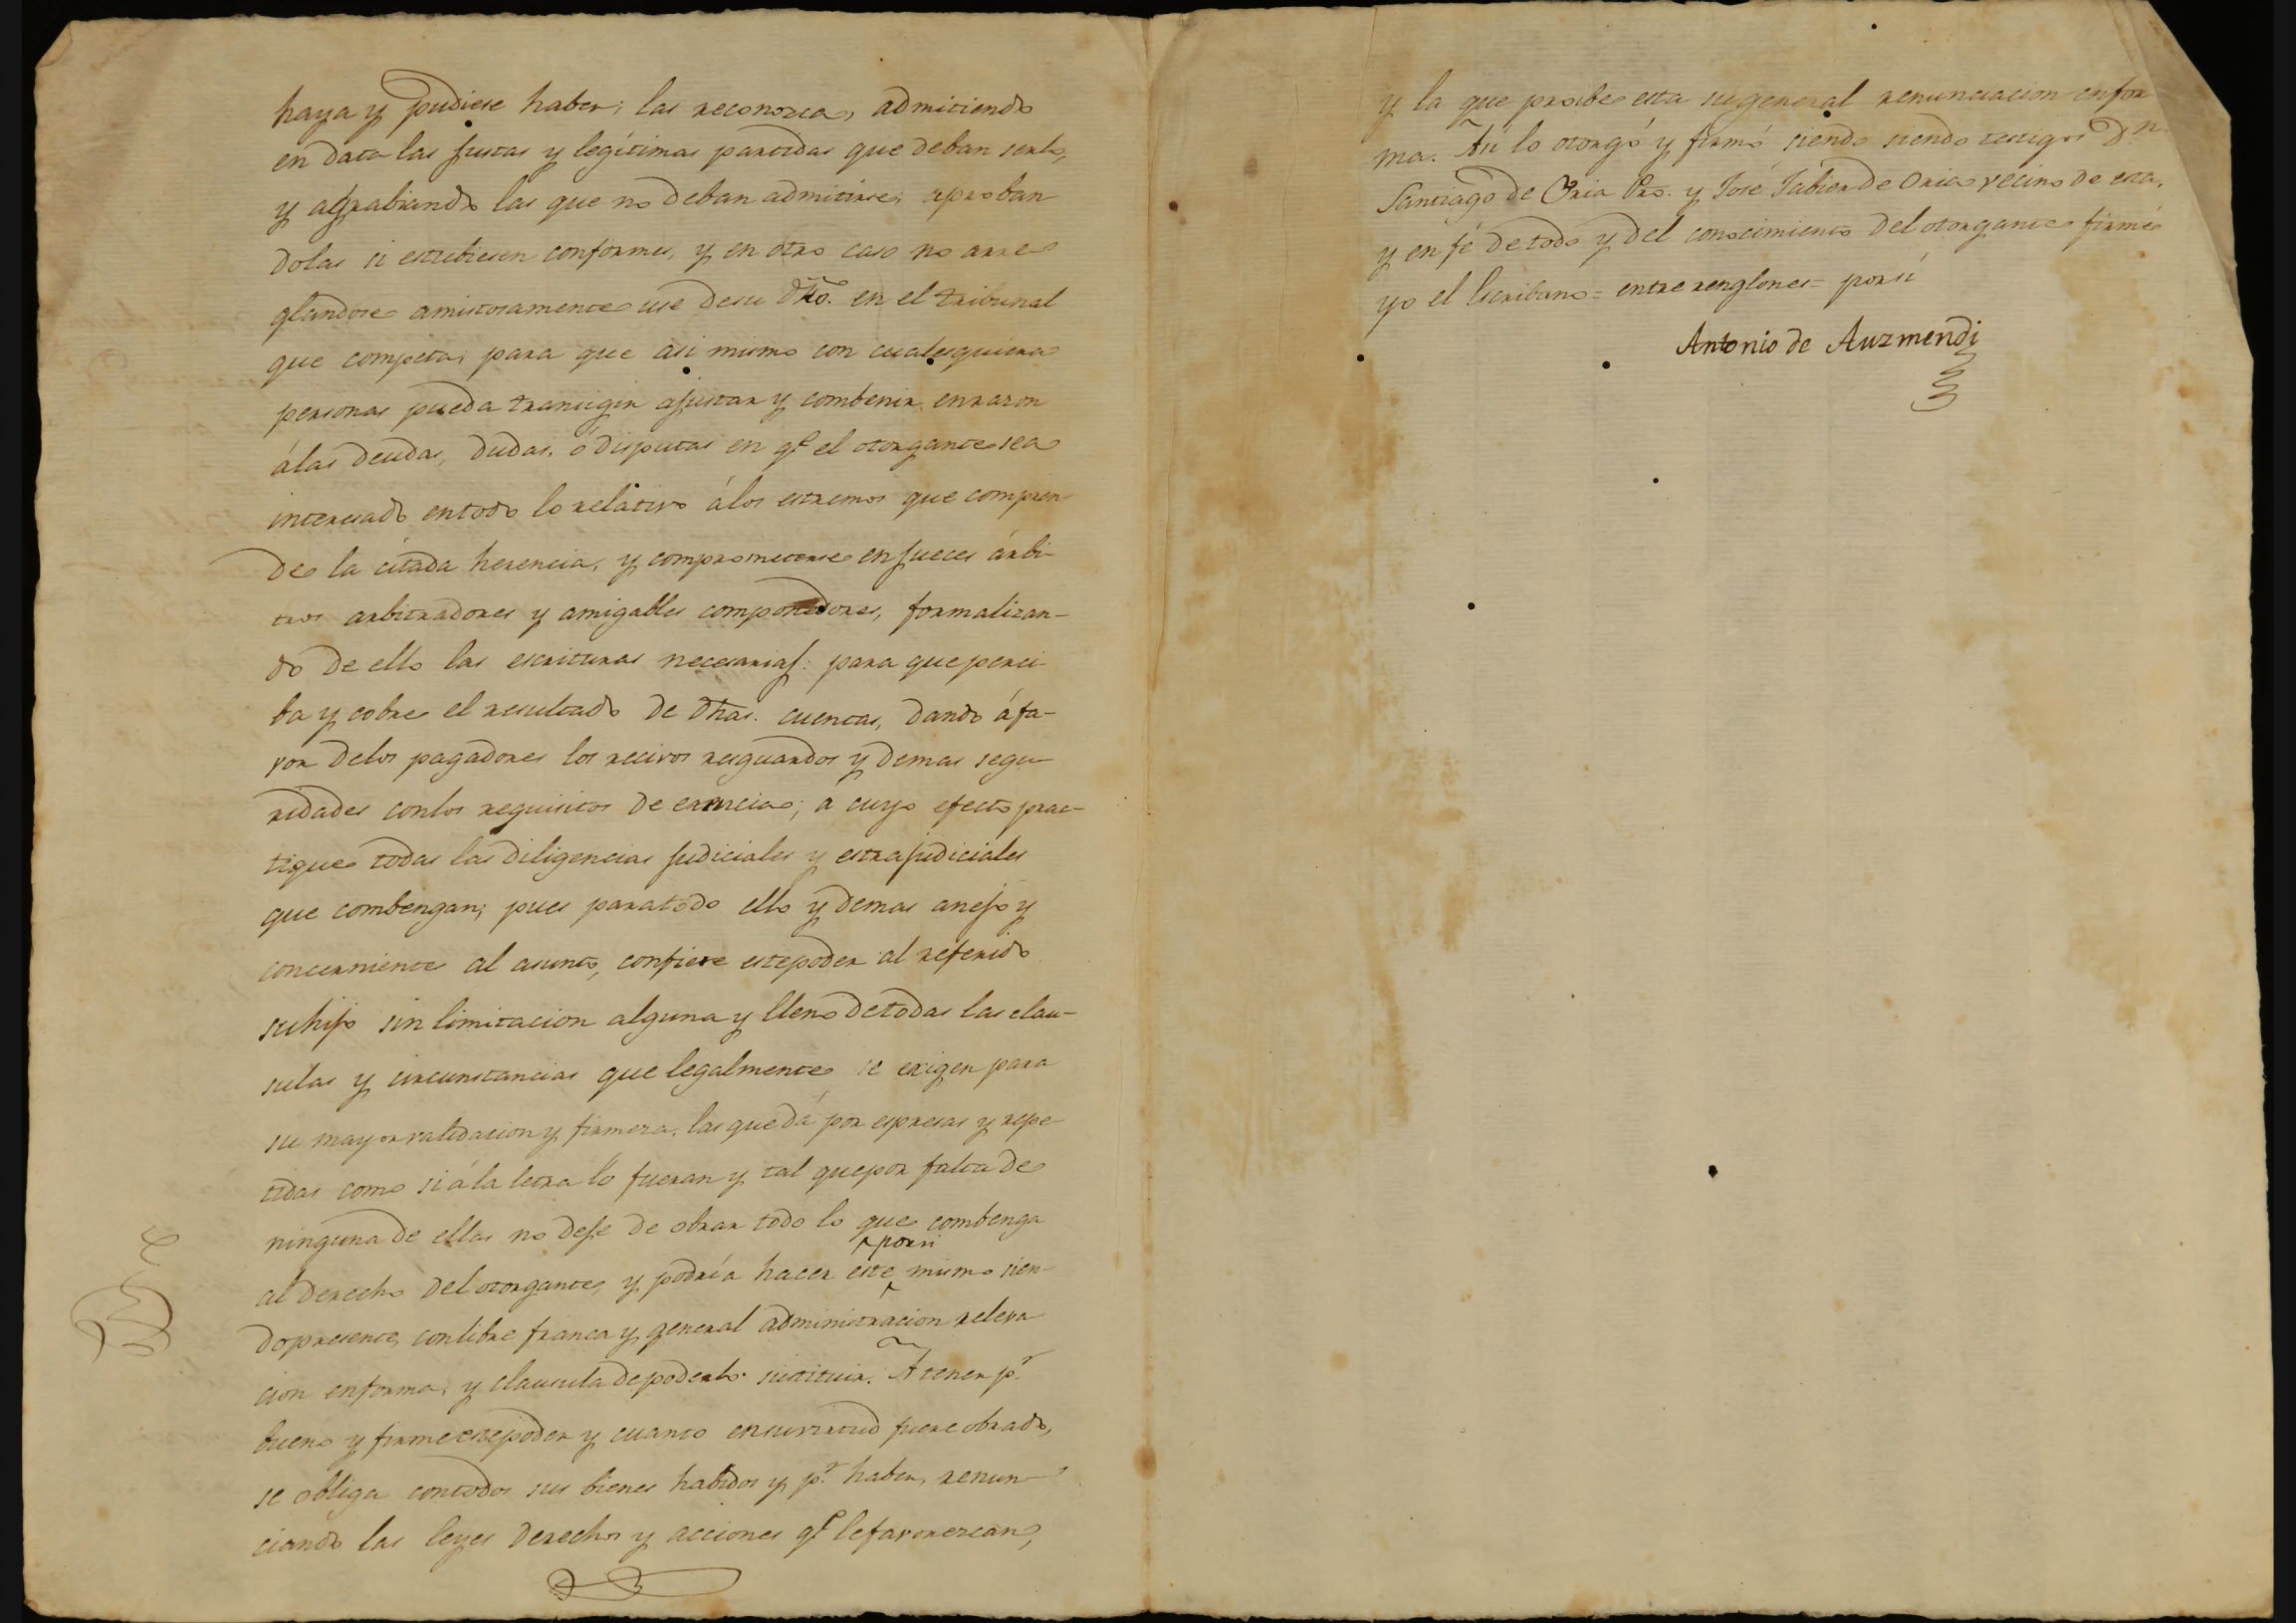 haya y pudiese haber; las reconozca, admitiendo
en data las justas y legítimas partidas que deban serlo,
y agrabiando las que no deban admitirse; aproban
dolas si estubiesen conformes, y en otro caso no arre
glandose amistosamente use de su dro. en el tribunal
que competa; para que asi mismo con cualesquiera
personas pueda transigir ajustar y combenir en razon
á las deudas, dudas, ó disputas en qe el otorgante sea
interesado en todo lo relativo á los estremos que compren
de la citada herencia, y comprometerse en jueces árbi-
tros arbitradores y amigables componedores, formalizan-
do de ello las escrituras necesarias: para que perci
ba y cobre el resultado de dhas. cuentas, dando á fa-
vor de los pagadores los recivos resguardos y demas segu-
ridades con los requisitos de esencia; á cuyo efecto prac-
tique todas las diligencias judiciales y estrajudiciales
que combengan; pues para todo ello y demas anejo y
concerniente al asunto, confiere este poder al referido
su hijo sin limitacion alguna y lleno de todas las clau-
sulas y circunstancias que legalmente se exigen para
su mayor validacion y firmeza, las que dá por espresas y repe
tidas como si á la letra lo fueran y tal que por falta de
ninguna de ellas no deje de obrar todo lo que combenga
por si
al derecho del otorgante, y podría hacer este mismo sien
do presente, con libre franca y general administracion releva
cion en forma, y clausula de poderlo sustituir. Á tener pr.
bueno y firme este poder y cuanto en su virtud fuere obrado,
se obliga con todos sus bienes habidos y pr. haber, renun-
ciando las leyes derechos y acciones qe le favorezcan,
y la que proibe esta su general renunciacion en for
ma. Asi lo otorgó y firmó siendo siendo testigos Dn.
Santiago de Oria Pro. y José Jabier de Oria vecino de esta,
y en fé de todo y del conocimiento del otorgante firmé
yo el Escribano = entre renglones = por sí
Antonio de Auzmendi